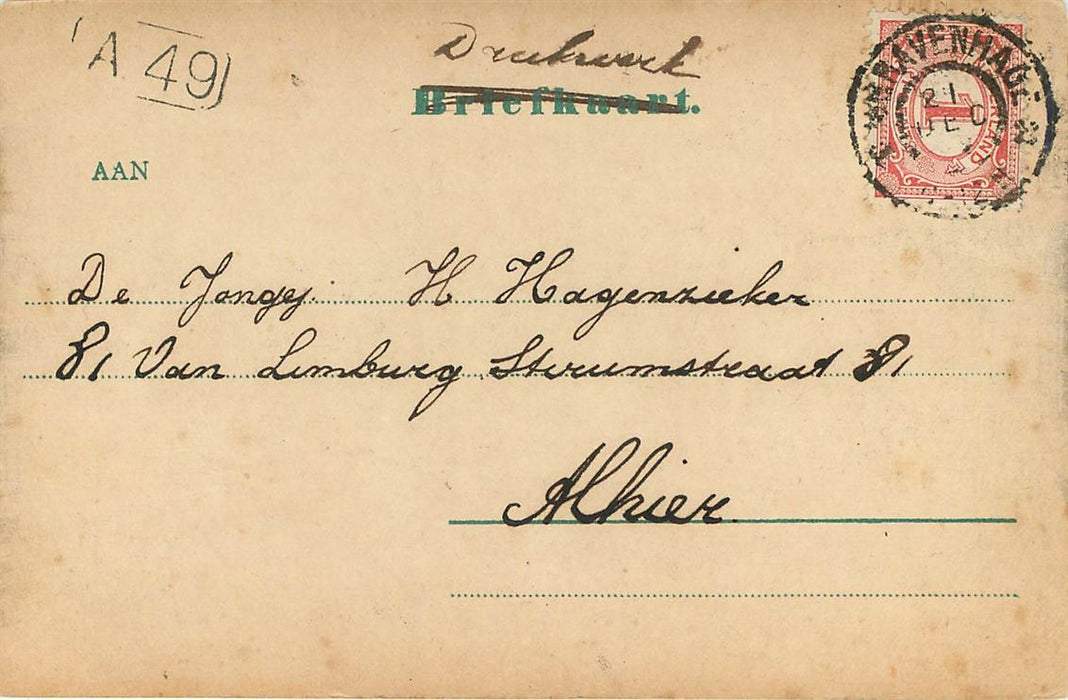 A 49
Drukwerk
Briefkaart.
'S-GRAVENHAGE
21
DEC
1
AAN
De Jongej. H Hagenzieker
81 Van Limburg Stirumstraat 81
Alhier.